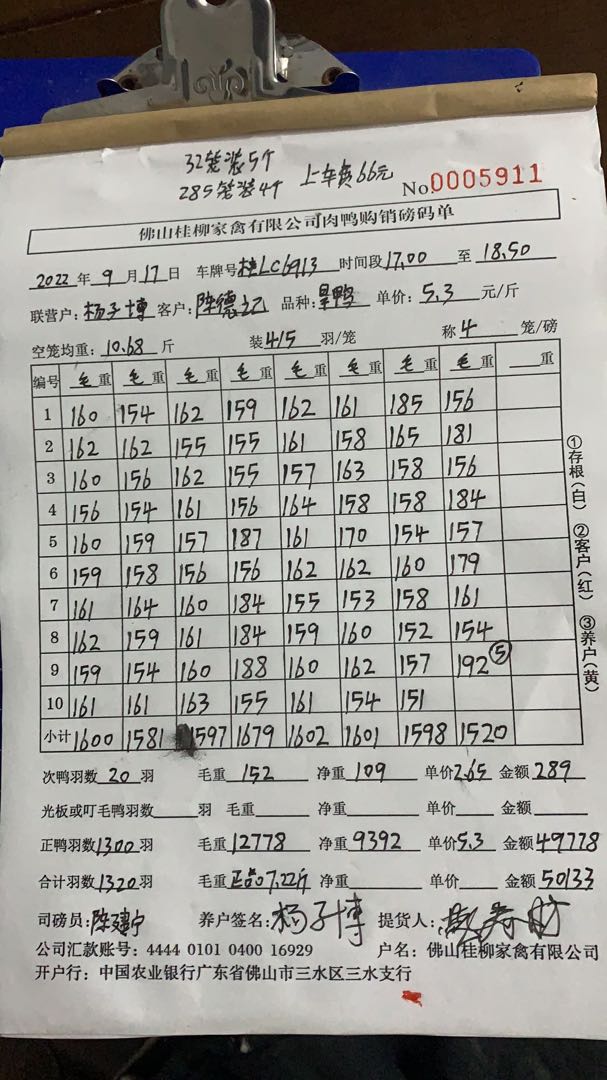 32笼装5个
285笼装4个 上车费66元
No.0005911
佛山桂柳家禽有限公司肉鸭购销磅码单
2022年9月17日 车牌号桂LC6913 时间段17.00至18.50
联营户:杨子博 客户:陈德记 品种:旱鸭 单价:5.3元/斤
空笼均重:10.68斤 装4/5羽/笼 称4笼/磅
编号 毛重 毛重 毛重 毛重 毛重 毛重 毛重 毛重 重
1 160 154 162 159 162 161 185 156
2 162 162 155 155 161 158 165 181
3 160 156 162 155 157 163 158 156
4 156 154 161 156 164 158 158 184
5 160 159 157 187 161 170 154 157
6 159 158 156 156 162 162 160 179
7 161 164 160 184 155 153 158 161
8 162 159 161 184 159 160 152 154
9 159 154 160 188 160 162 157 192⑤
10 161 161 163 155 161 154 151
小计 1600 1581 1597 1679 1602 1601 1598 1520
次鸭羽数20羽 毛重152 净重109 单价2.65 金额289
光板或叮毛鸭羽数羽 毛重 净重 单价 金额
正鸭羽数1300羽 毛重12778 净重9392 单价5.3 金额49778
合计羽数1320羽 毛重正品7.22斤 净重 单价 金额50133
司磅员:陈建宁 养户签名:杨子博 提货人:
公司汇款账号:4444 0101 0400 16929 户名:佛山桂柳家禽有限公司
开户行:中国农业银行广东省佛山市三水区三水支行
①存根(白) ②客户(红) ③养户(黄)